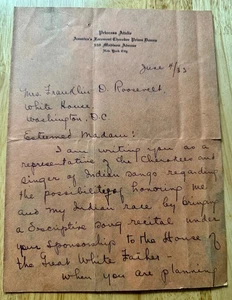 Princess Atalie
America's Foremost Cherokee Prima Donna
Madison Avenue
New York City
June 4/33
Mrs. Franklin D. Roosevelt,
White House,
Washington, D.C.
Esteemed Madam:
I am writing you as a
representative of the Cherokees and
singer of Indian songs regarding
the possibility of honoring me
and my Indian race by
a Descriptive Song recital under
your Sponsorship to the House of
the Great White Father-
When you are planning